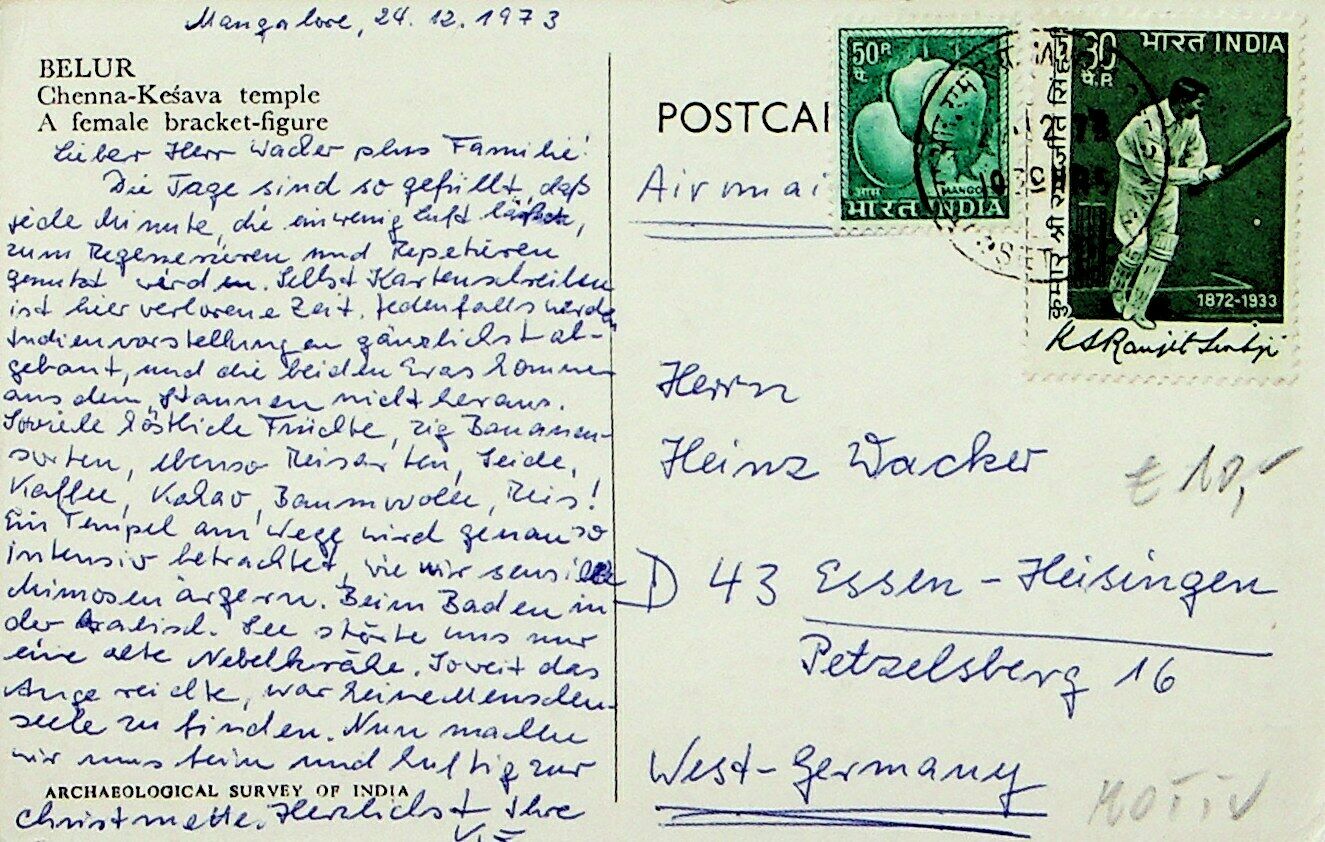 Mangalore, 24.12.1973
BELUR
Chenna-Keśava temple
A female bracket-figure
Lieber Herr Wacker plus Familie!
Die Tage sind so gefüllt, daß
jede Minute, die ein wenig Luft
zum Regenerieren und Repetieren
genutzt werden. Selbst Kartenschreiben
ist hier verlorene Zeit. Jedenfalls werden
Indienvorstellungen gänzlichst ab-
gebaut, und die beiden Evas kommen
aus dem Staunen nicht heraus.
Soviele köstliche Früchte, zig Bananen-
sorten, ebenso Reisarten, Seide,
Kaffee, Kakao, Baumwolle, Reis!
Ein Tempel am Wege wird genauso
intensiv betrachtet, wie wir
Mimosen ärgern. Beim Baden in
der Arabisch. See störte uns nur
eine alte Nebelkrähe. Soweit das
Auge reichte, war keine Menschen-
seele zu finden. Nun machen
wir uns fein und luftig zur
ARCHAEOLOGICAL SURVEY OF INDIA
Christmette. Herzlichst Ihre
POSTCAR
Airmai
50 P
पै.
आम MANGO
भारत INDIA
30
पै. P.
भारत INDIA
कुमार श्री रणजीत सिंहजी
1872-1933
K S Ranjit Sinhji
Herrn
Heinz Wacker
€ 10,-
D 43 Essen-Heisingen
Petzelsberg 16
West-Germany
MOTIV